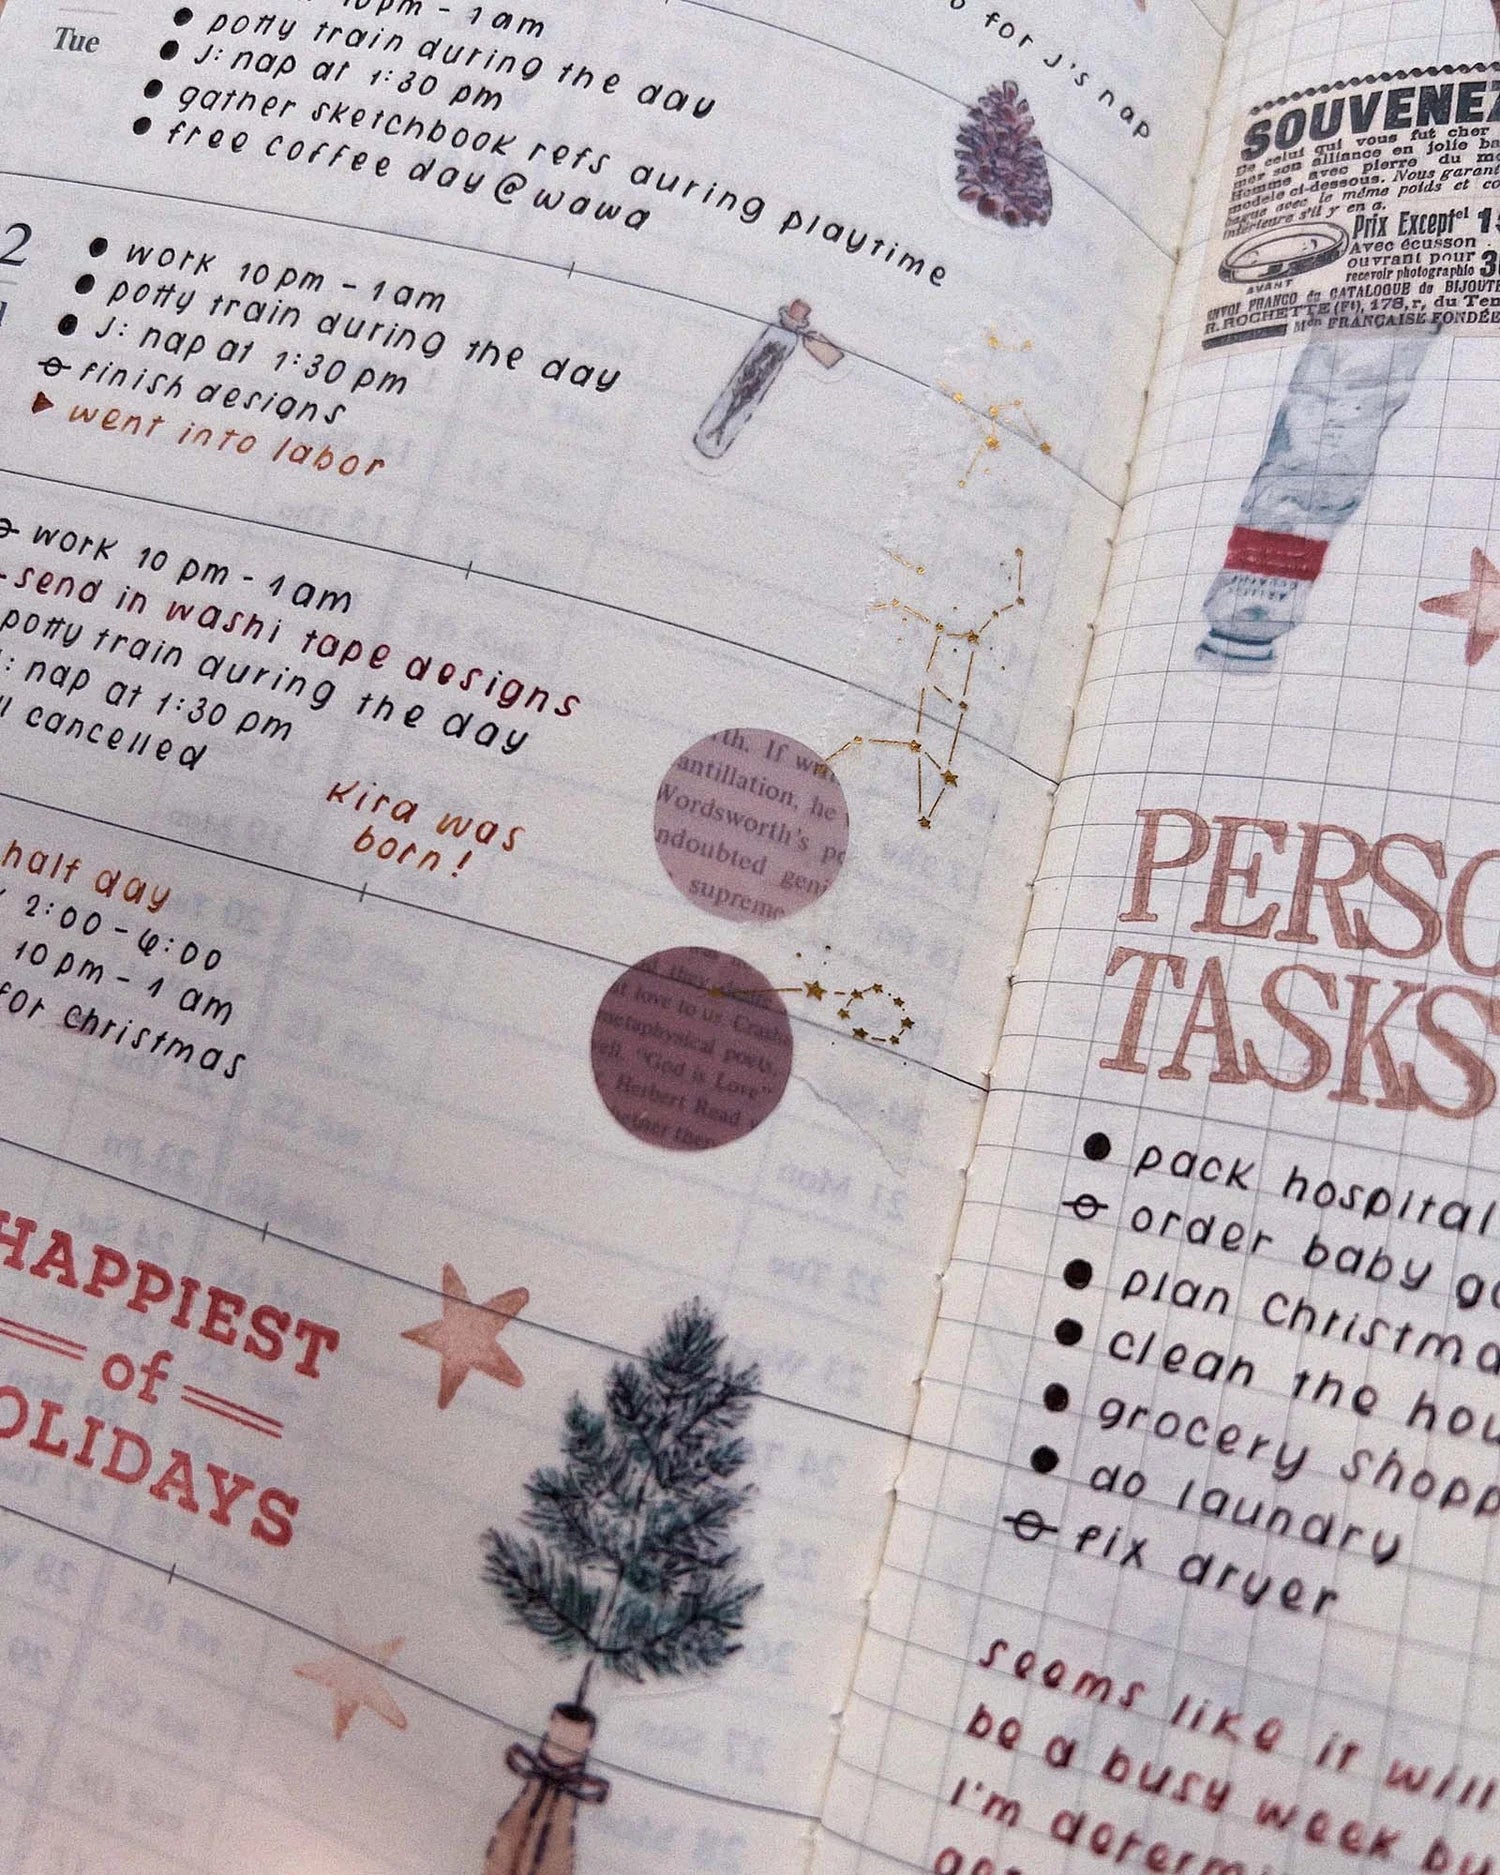 10pm - 1am
Tue
● potty train during the day
● J: nap at 1:30 pm
● gather sketchbook refs during playtime
● free coffee day @ wawa
for J's nap
2
● work 10pm - 1am
● potty train during the day
● J: nap at 1:30 pm
finish designs
▶ went into labor
work 10 pm - 1am
send in washi tape designs
potty train during the day
: nap at 1:30 pm
cancelled
Kira was
born!
half day
2:00 - 6:00
10pm - 1 am
for christmas
th. If
antillation, he
Wordsworth's
ndoubted
supreme
love to us
metaphysical poets,
"God is Love"
Herbert Read
HAPPIEST
of
OLIDAYS
SOUVENEZ
De celui qui vous fut cher
mer son alliance en jolie
Homme avec pierre du
modèle ci-dessous. Nous
bague avec le même poids et
intérieure s'il y en a.
Prix Exceptel
Avec écusson
ouvrant pour
recevoir photographie
AVANT
ENVOI FRANCO du CATALOGUE de
R. ROCHETTE (Ft), 178, r, du
Mon FRANÇAISE
PERSO
TASKS
● pack hospital
order baby
● plan Christma
● clean the hou
● grocery shopp
● do laundry
fix dryer
seems like it will
be a busy week
I'm determ